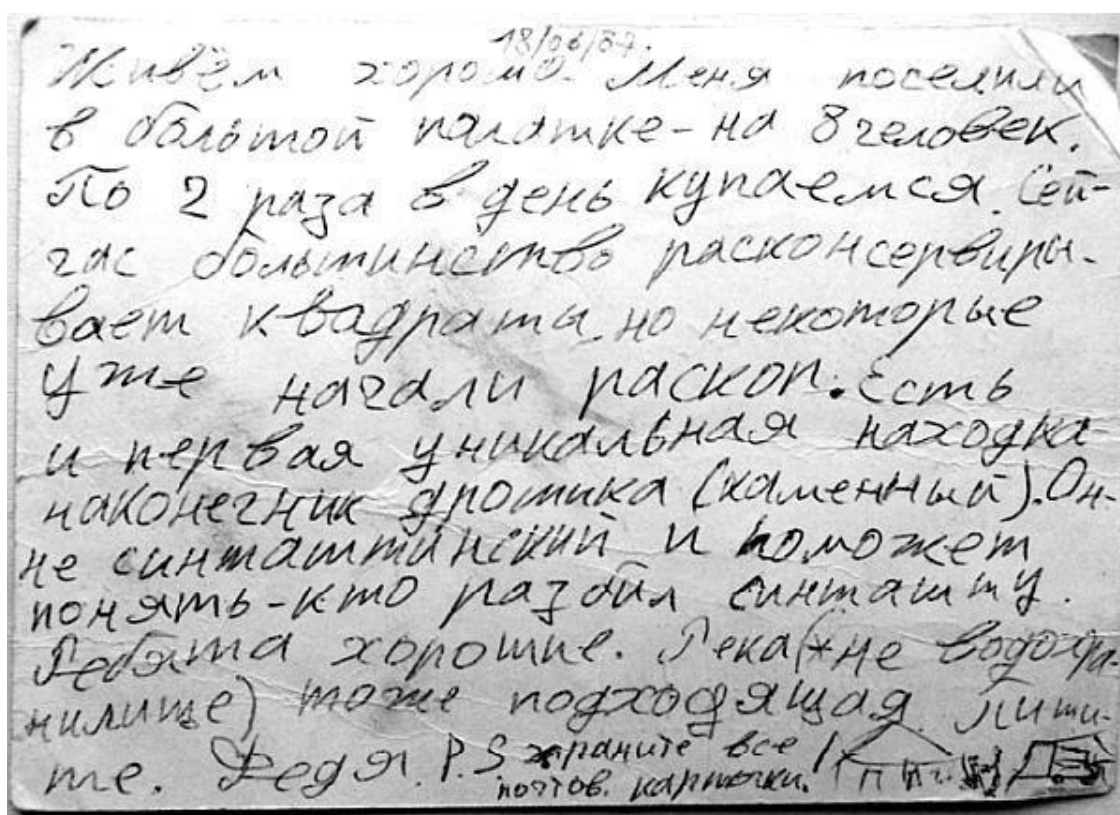 18/06/87.
Живём хорошо. Меня поселили
в большой палатке - на 8 человек.
По 2 раза в день купаемся. Сей-
час большинство расконсервиры-
вает квадраты, но некоторые
уже начали раскоп. Есть
и первая уникальная находка
наконечник дротика (каменный). Он-
не синташтинский и поможет
понять - кто разбил синташту.
Ребята хорошие. Река (*не водохра
нилище) тоже подходящая. Пиши-
те. Федя. P.S храните все
почтов. карточки.